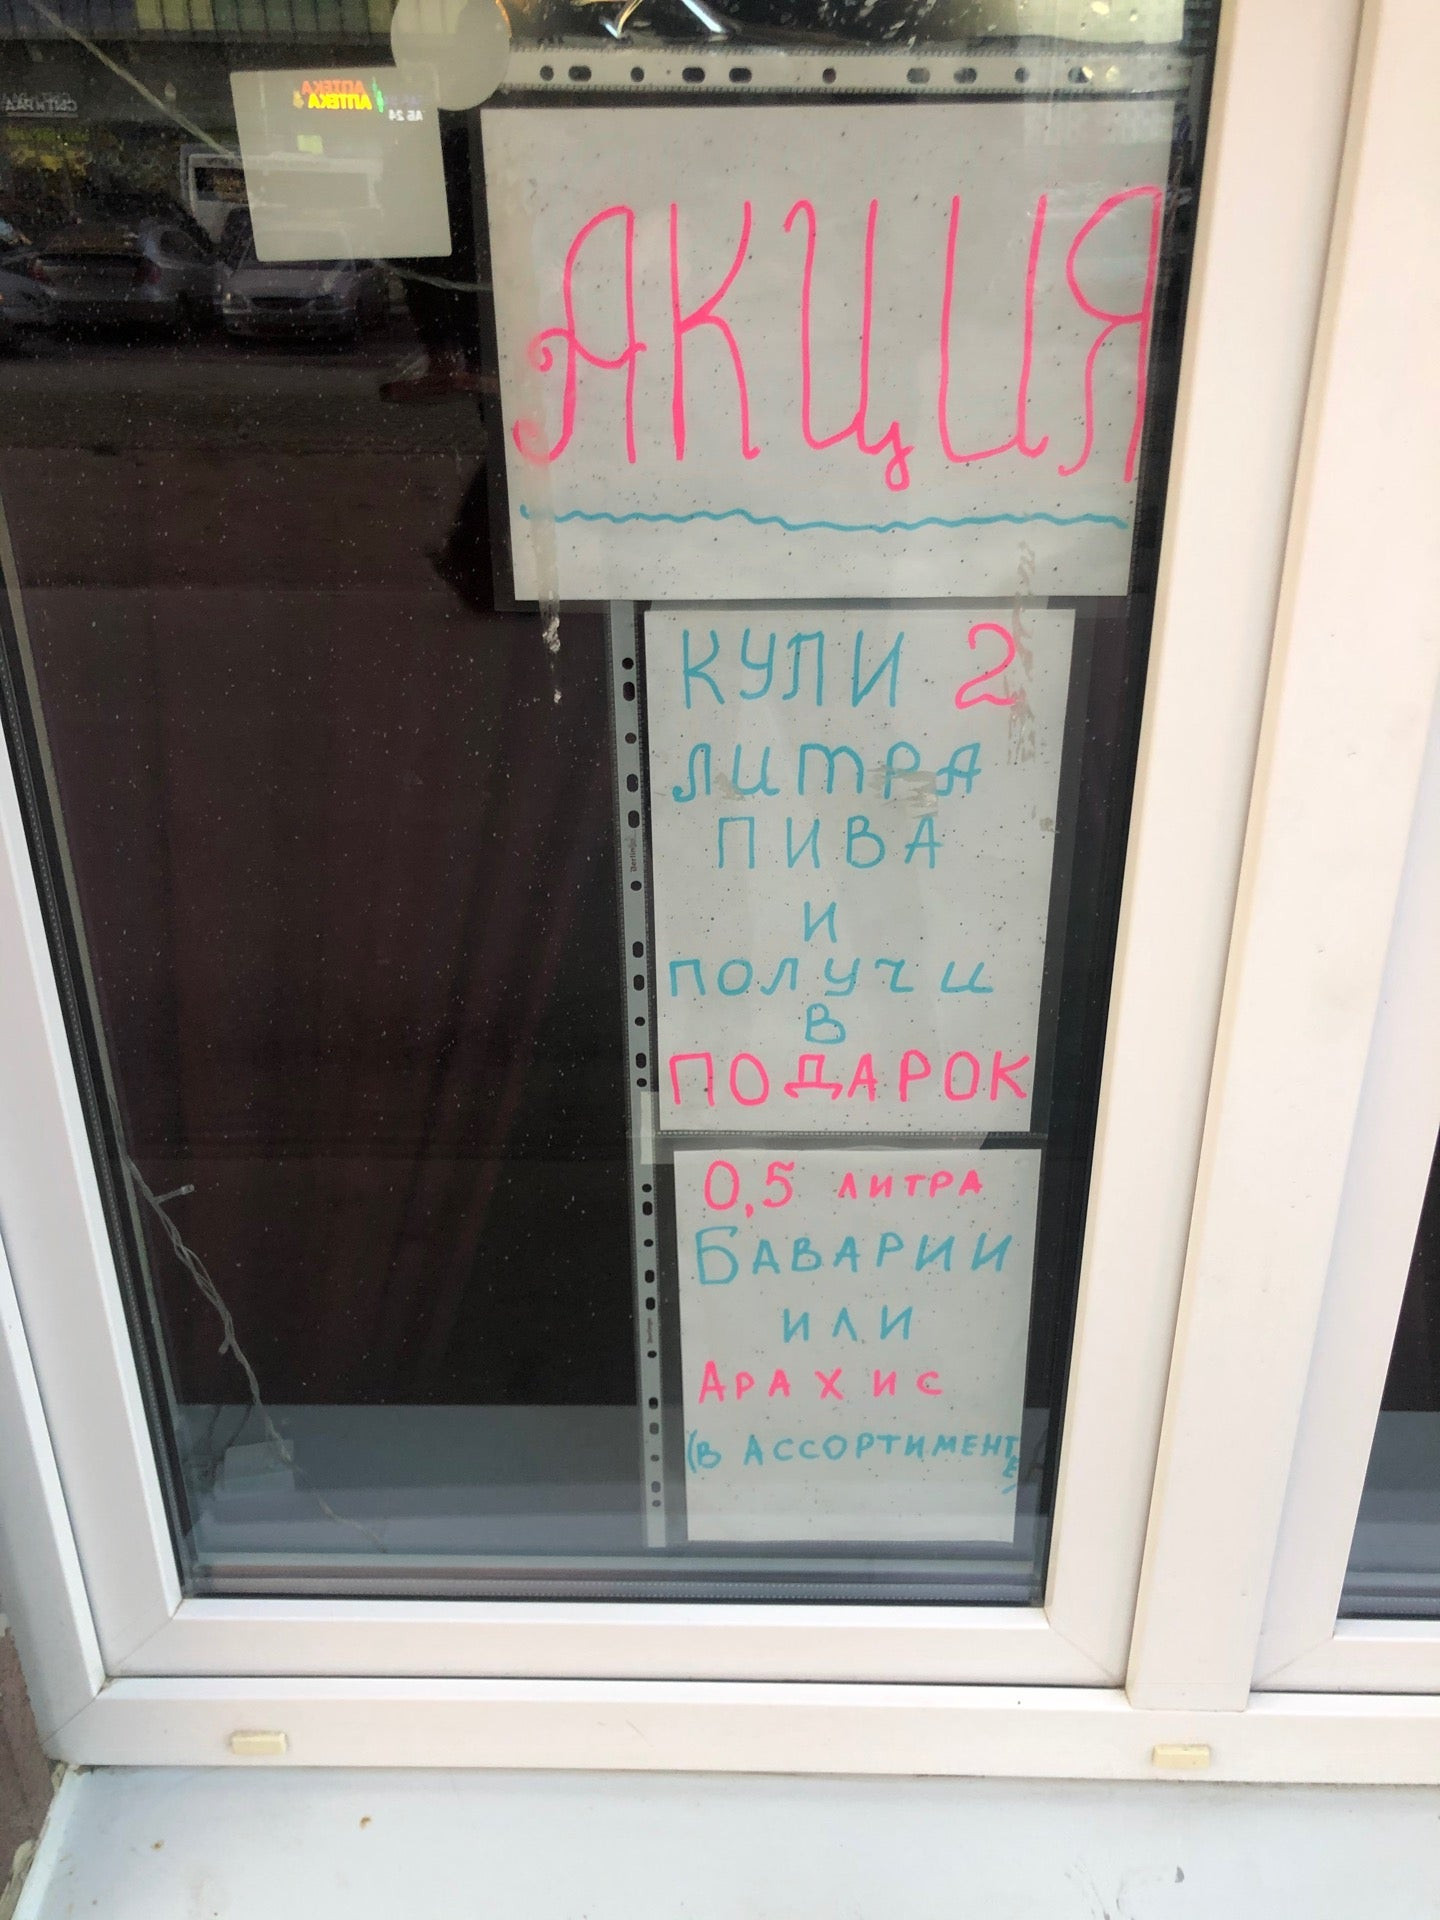 АПТЕКА
АПТЕКА
АКЦИЯ
КУПИ 2
ЛИТРА
ПИВА
И
ПОЛУЧИ
В
ПОДАРОК
0,5 ЛИТРА
БАВАРИИ
ИЛИ
АРАХИС
(В АССОРТИМЕНТЕ)